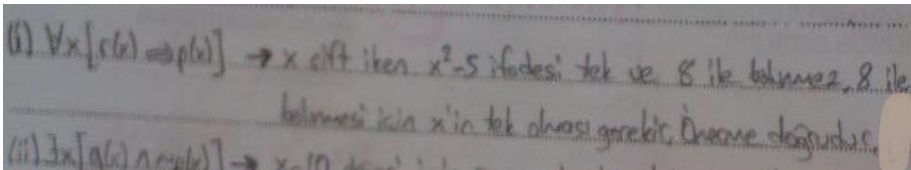 (i) ∀x[r(x) ⇒ p(x)] → x çift iken x²-5 ifadesi tek ve 8 ile bölünmez. 8 ile
bölünmesi için x'in tek olması gerekir. Önerme doğrudur.
(ii) ∃x[q(x) ∧